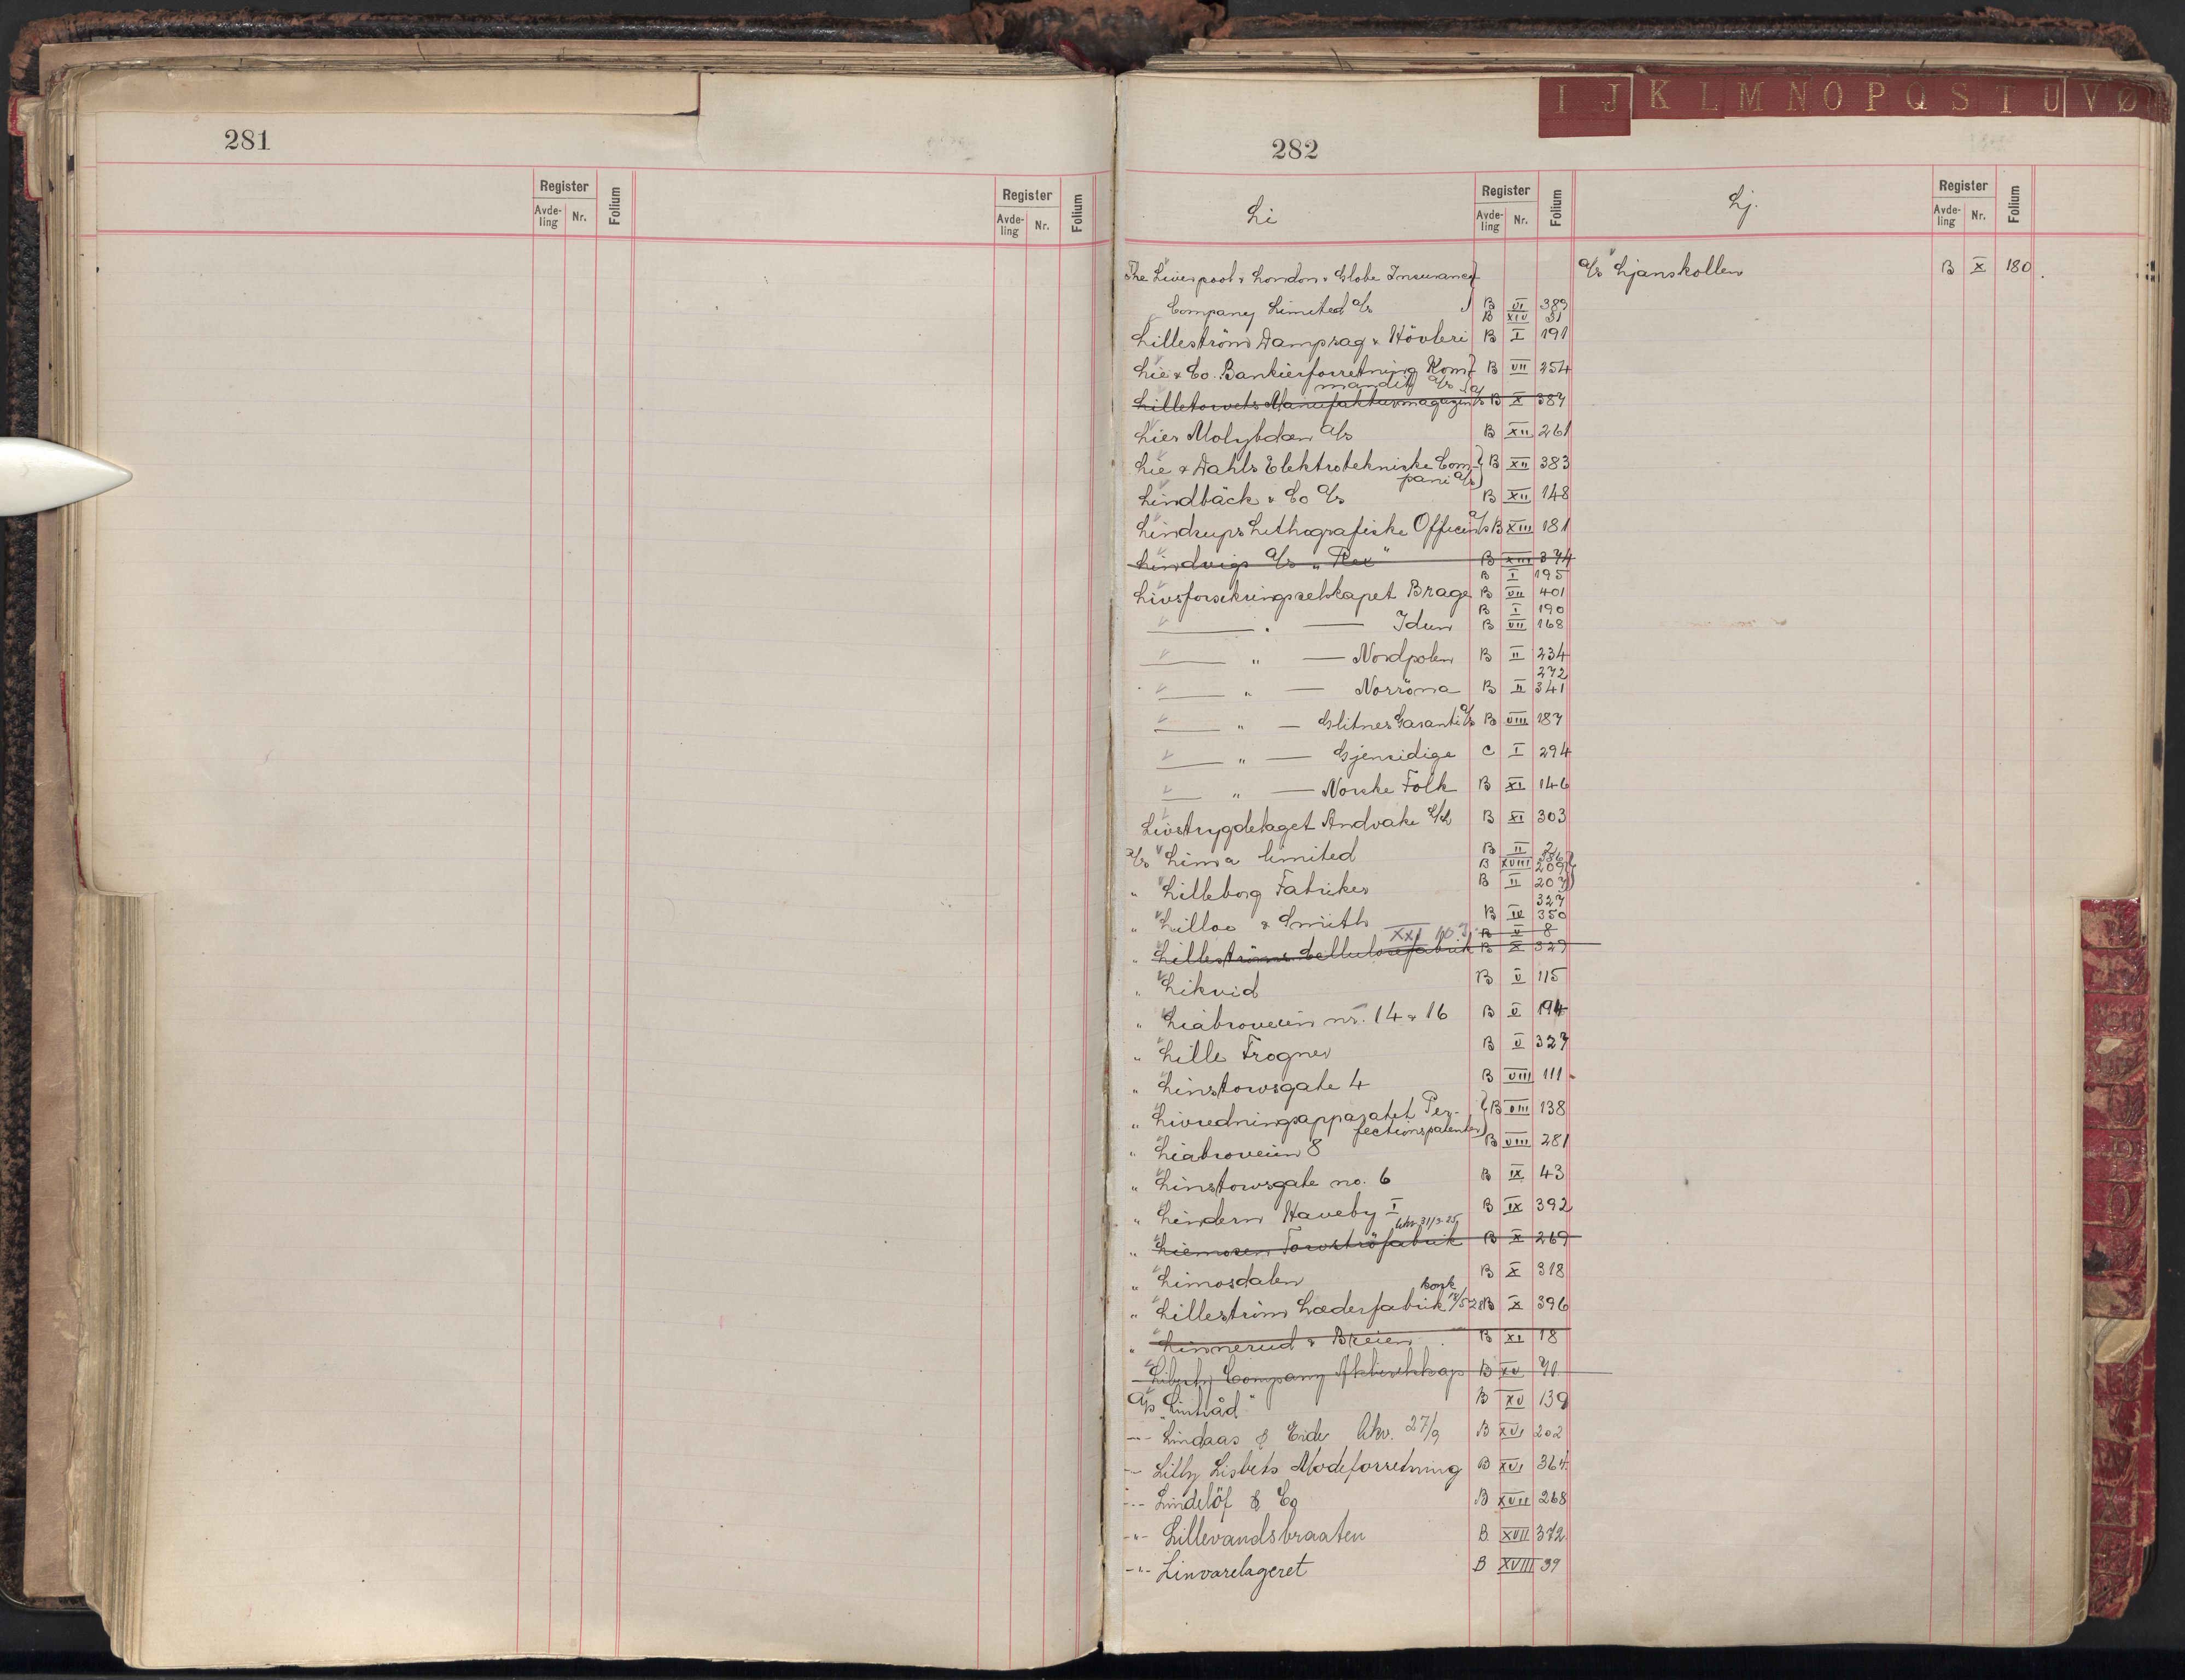 281
Register Folium Register Folium
Avde-ling Nr. Avde-ling Nr.
I J K L M N O P Q S T U V Ø
282
Li Register Folium Lj. Register Folium
Avde-ling Nr. Avde-ling Nr.
The Liverpool & London & Globe Insurance
Company Limited A/s B VI 389
B XIV 31
Lilleström Dampsag & Hövleri B I 191
Lie & Co. Bankierforretning Kom- B VII 254
mandit A/s
Lilletorvets Manufakturmagazin A/s B X 387
Lier Molybdæn A/s B XII 261
Lie & Dahls Elektrotekniske Com- B XII 383
pani A/s
Lindbäck & Co A/s B XII 148
Lindrups Lithografiske Officin A/s B XIII 181
Lindvigs A/s „Rex" B XIII 374
B I 195
Livsforsikringsselskapet Brage B VII 401
B I 190
— " — Idun B VII 168
— " — Nordpolen B II 234
272
— " — Norröna B II 341
— " — Glitnes Garanti A/s B VIII 187
— " — Gjensidige C I 294
— " — Norske Folk B XI 146
Livstrygdelaget Andvake B XI 303
A/s Lima limited B II 2
B XVIII 209
" Lilleborg Fabriker B II 207
327
" Lilloe & Smith B IV 350
XXI B V 8
" Lilleströms Cellulosefabrik B X 329
" Likvid B V 115
" Liabroveien nr. 14 & 16 B V 194
" Lille Frogner B V 327
" Linstowsgate 4 B VIII 111
" Livredningsapparatet Per- B VIII 138
fectionspatenter
" Liabroveien 8 B VIII 281
" Linstowsgate no. 6 B IX 43
" Lindern Haveby I B IX 392
" Liemosen Torvströfabrik B X 269
" Limosdalen B X 318
Konk
" Lilleström Læderfabrik 12/5-28 B X 396
" Linnerud & Breien B XI 18
Liberty Company Aktieselskap B XV 71
A/s „Lintråd" B XV 139
-"- Lindaas & Eide likv. 27/9 B XVI 202
-"- Lilly Lisbets Modeforretning B XVI 364
-"- Lindelöf & Co B XVII 268
-"- Lillevandsbraaten B. XVII 372
-"- Linvarelageret B XVIII 39
A/s Ljanskollen B X 180.